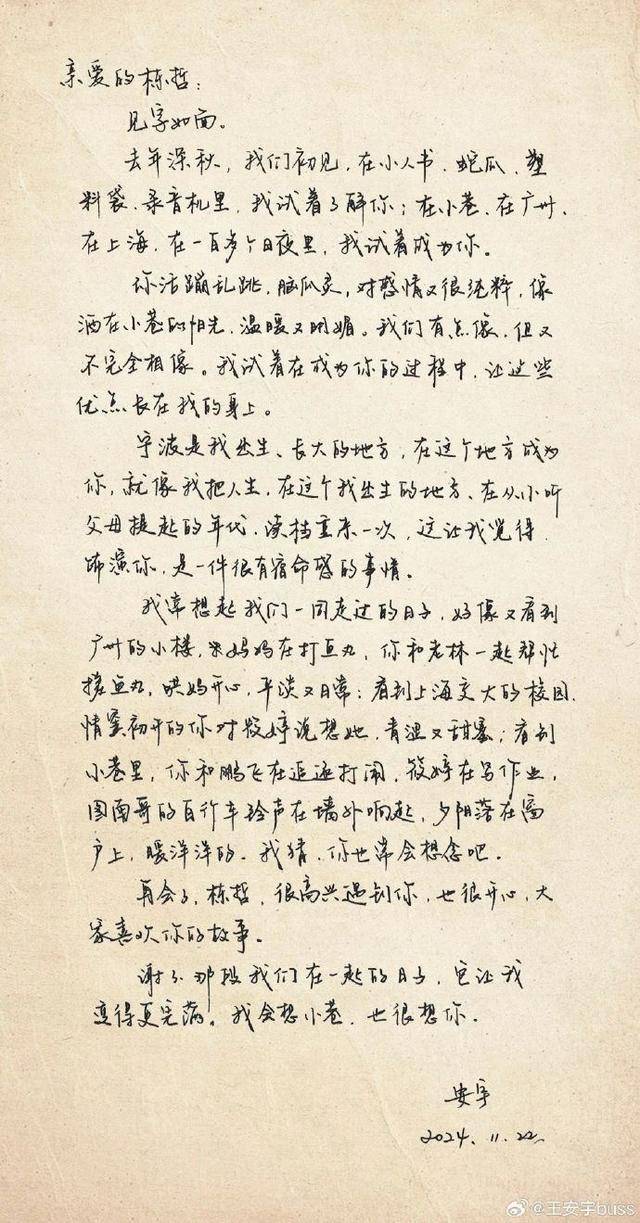 亲爱的栋哲：
见字如面。
去年深秋，我们初见，在小人书、蛇瓜、塑
料袋、录音机里，我试着了解你；在小巷、在广州、
在上海，在一百多个日夜里，我试着成为你。
你活蹦乱跳，脑瓜灵，对感情又很纯粹，像
洒在小巷的阳光，温暖又明媚。我们有点像，但又
不完全相像。我试着在成为你的过程中，让这些
优点长在我的身上。
宁波是我出生、长大的地方，在这个地方成为
你，就像我把人生，在这个我出生的地方、在从小听
父母提起的年代，读档重来一次，这让我觉得，
饰演你，是一件很有宿命感的事情。
我常想起我们一同走过的日子，好像又看到
广州的小楼，宋妈妈在打鱼丸，你和老林一起帮忙
搓鱼丸，哄妈开心，平淡又日常；看到上海交大的校园，
情窦初开的你对筱婷说想她，青涩又甜蜜；看到
小巷里，你和鹏飞在追逐打闹，筱婷在写作业，
图南哥的自行车铃声在墙外响起，夕阳落在窗
户上，暖洋洋的。我猜，你也常会想念吧。
再会了，栋哲，很高兴遇到你，也很开心，大
家喜欢你的故事。
谢了那段我们在一起的日子，它让我
变得更完满。我会想小巷，也很想你。
安宇
2024.11.22
@王安宇buss